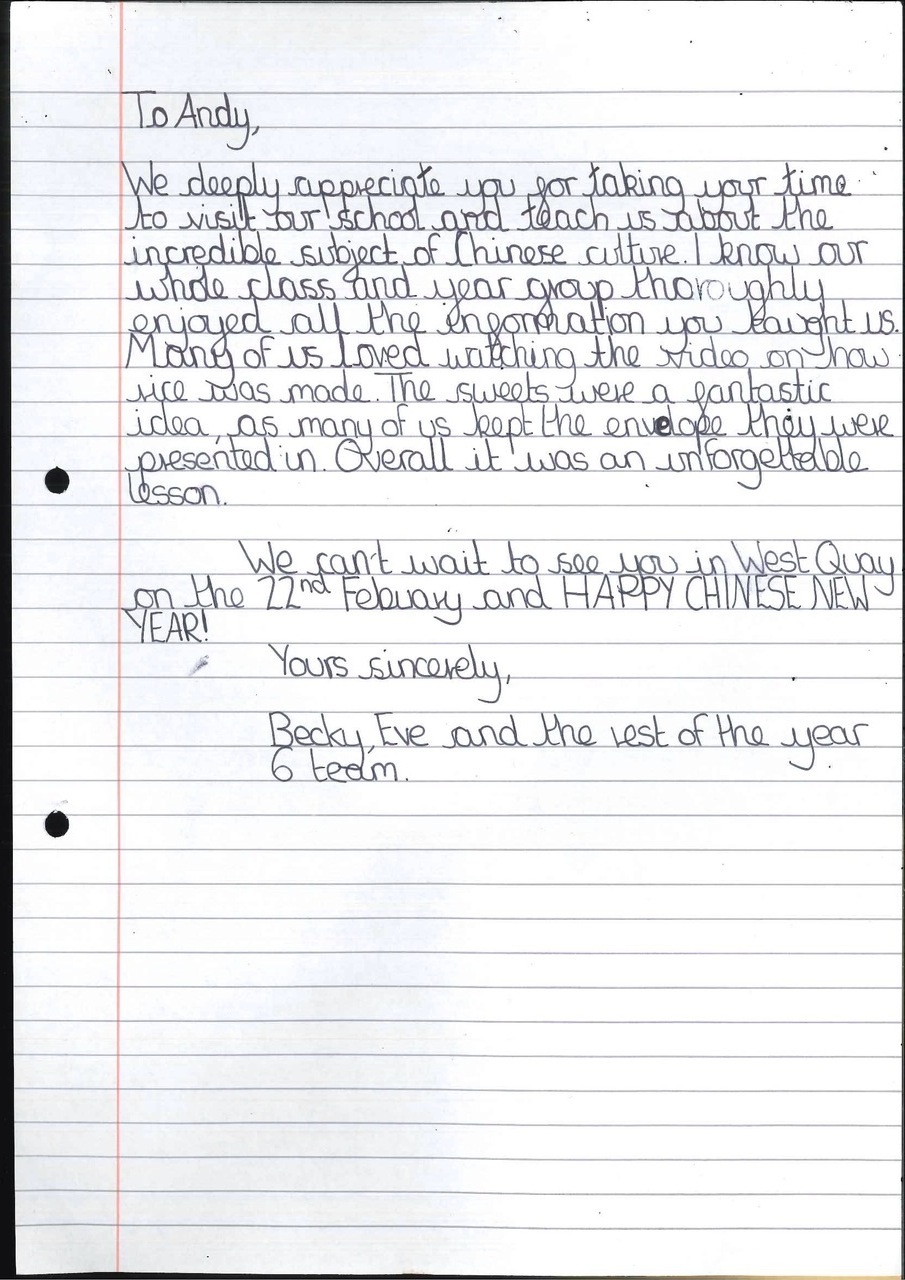 To Andy,
We deeply appreciate you for taking your time
to visit our school and teach us about the
incredible subject of Chinese culture. I know our
whole class and year group thoroughly
enjoyed all the information you taught us.
Many of us loved watching the video on how
rice was made. The sweets were a fantastic
idea, as many of us kept the envelope they were
presented in. Overall it was an unforgettable
lesson.
We can't wait to see you in West Quay
on the 22nd Febuary and HAPPY CHINESE NEW
YEAR!
Yours sincerely,
Becky, Eve and the rest of the year
6 team.